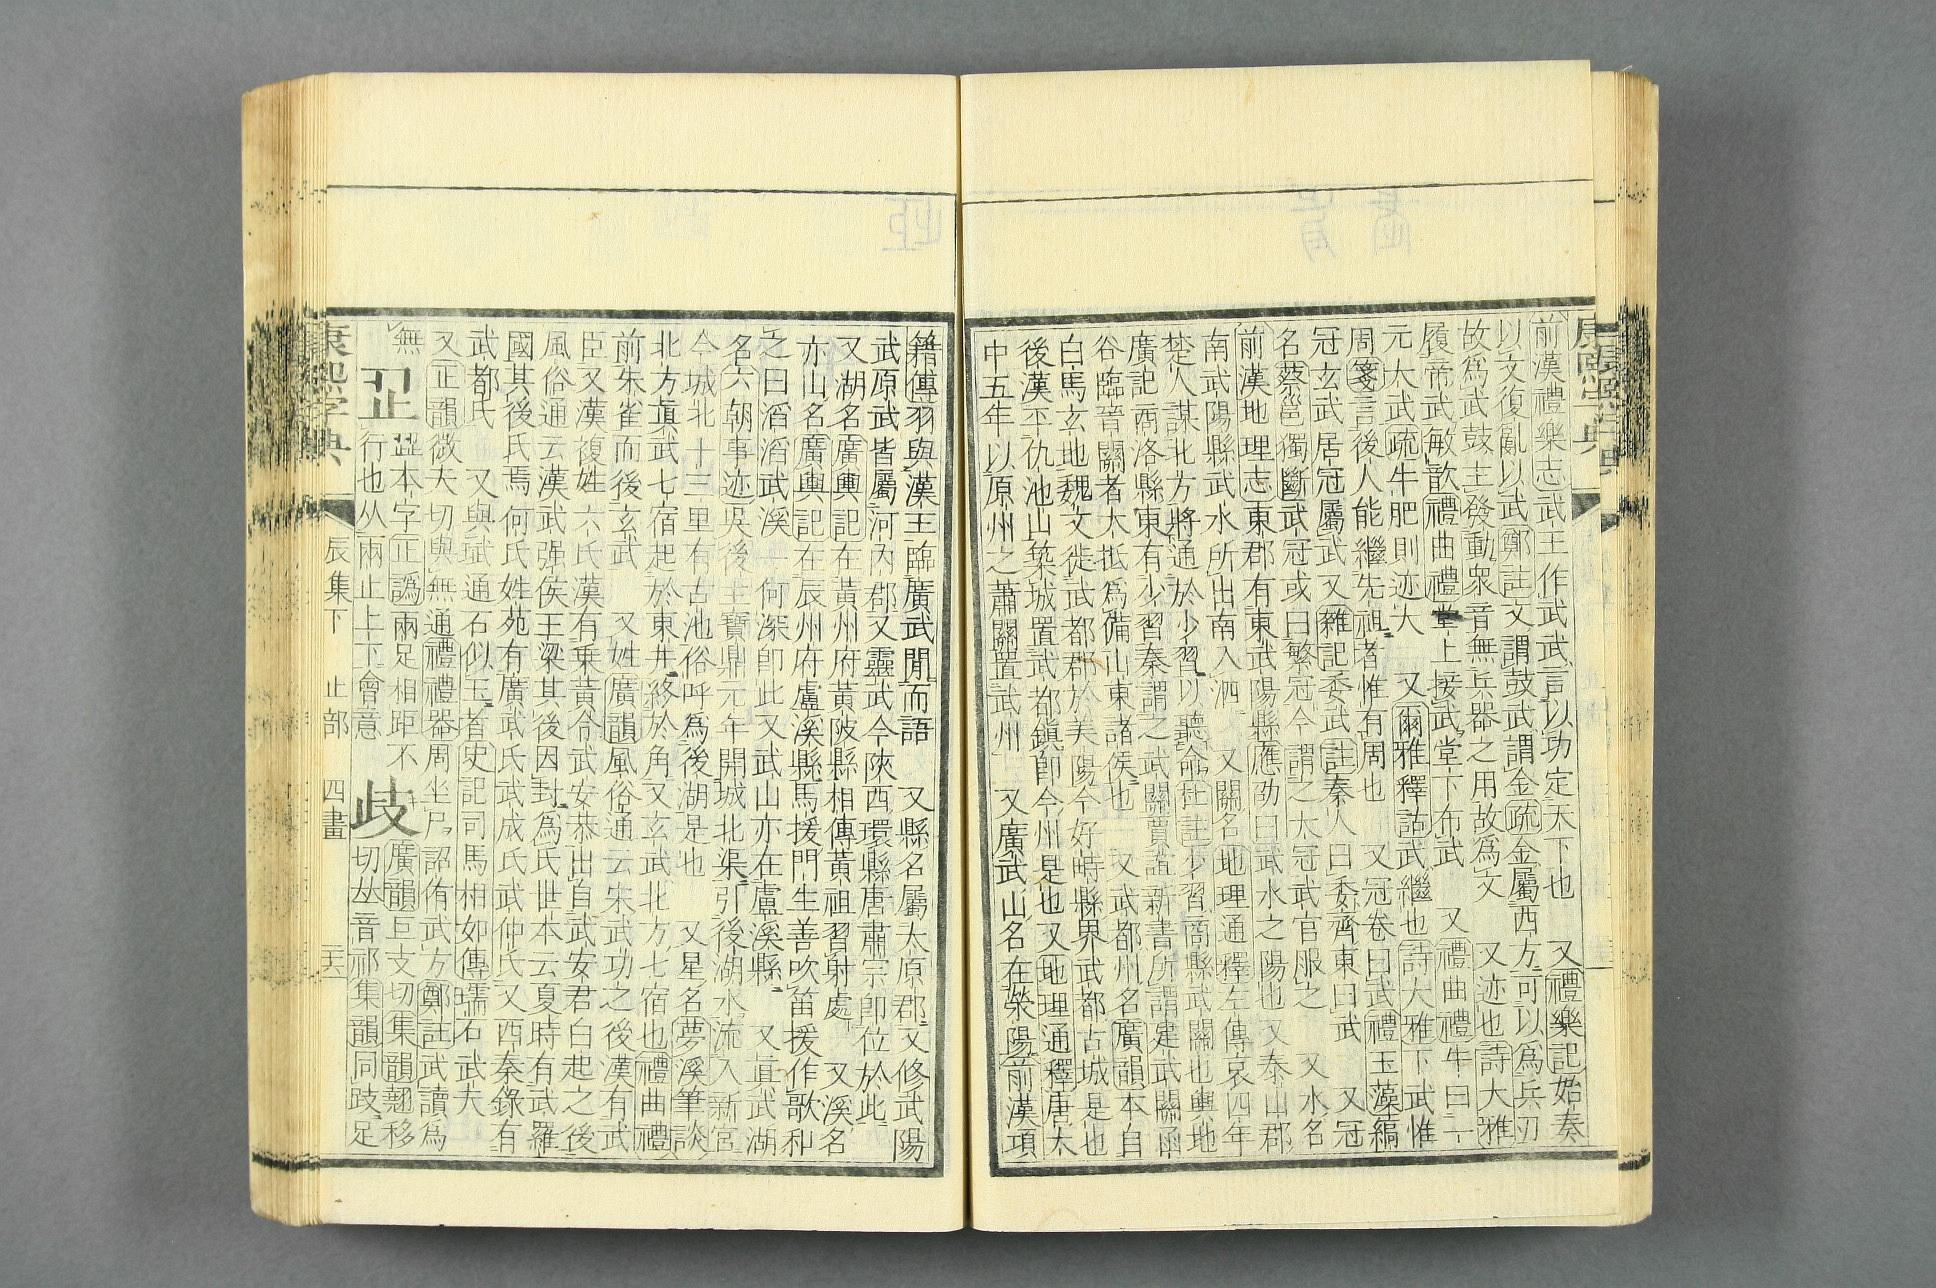 前漢禮樂志武王作武武言以功定天下也　又禮樂記始奏
以文復亂以武鄭註文謂鼓武謂金疏金屬西方可以為兵刃
故為武鼓主發動衆音無兵器之用故為文　又迹也詩大雅
履帝武敏歆禮曲禮堂上接武堂下布武　又禮曲禮牛曰一
元大武疏牛肥則迹大　又爾雅釋詁武繼也詩大雅下武惟
周箋言後人能繼先祖者惟有周也　又冠卷曰武禮玉藻縞
冠玄武居冠屬武又雜記委武註秦人曰委齊東曰武　又冠
名蔡邕獨斷武冠或曰繁冠今謂之大冠武官服之　又水名
前漢地理志東郡有東武陽縣應劭曰武水之陽也又泰山郡
南武陽縣武水所出南入泗　又關名地理通釋左傳哀四年
楚人謀北方將通於少習以聽命杜註少習商縣武關也輿地
廣記商洛縣東有少習秦謂之武關賈誼新書所謂建武關函
谷臨晉關者大抵為備山東諸侯也　又武都州名廣韻本自
白馬玄地魏文徙武都郡於美陽今好畤縣界武都古城是也
後漢丕仇池山築城置武都鎮卽今州是也又地理通釋唐大
中五年以原州之蕭關置武州　又廣武山名在滎陽前漢項
籍傳羽與漢王臨廣武閒而語　又縣名屬太原郡又修武陽
武原武皆屬河內郡又靈武今陝西環縣唐肅宗卽位於此
又湖名廣輿記在黃州府黃陂縣相傳黃祖習射處　又溪名
亦山名廣輿記在辰州府盧溪縣馬援門生善吹笛援作歌和
之曰滔滔武溪一何深卽此又武山亦在盧溪縣　又眞武湖
名六朝事迹吳後主寶鼎元年開城北渠引後湖水流入新宮
今城北十三里有古池俗呼為後湖是也　又星名夢溪筆談
北方眞武七宿起於東井終於角又玄武北方七宿也禮曲禮
前朱雀而後玄武　又姓廣韻風俗通云宋武功之後漢有武
臣又漢複姓六氏漢有乗黃令武安恭出自武安君白起之後
風俗通云漢武强侯王梁其後因封為氏世本云夏時有武羅
國其後氏焉何氏姓苑有廣武氏武成氏武仲氏又西秦錄有
武都氏　又與珷通石似玉者史記司馬相如傳碝石武夫
又正韻微夫切與無通禮禮器周坐尸詔侑武方鄭註武讀為
無　𣥖本字正譌兩足相距不
行也从兩止上下會意　歧　廣韻巨支切集韻翹移
切𠀤音祁集韻同跂足
康熙字典　辰集下　止部　四畫
康熙字典